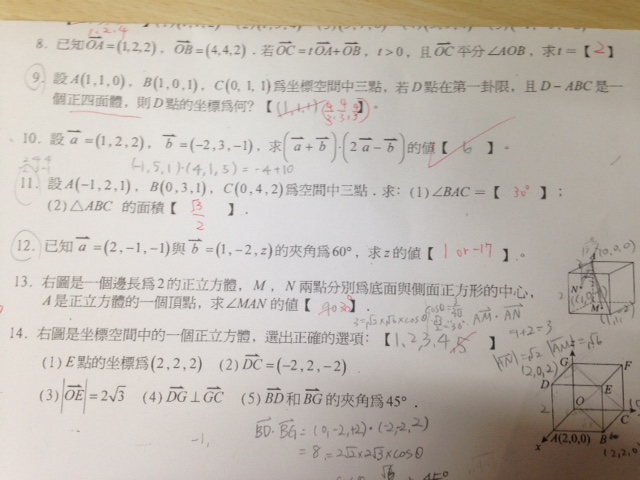 1.2.4
8. 已知OA=(1,2,2)，OB=(4,4,2)．若OC=tOA+OB，t>0，且OC平分∠AOB，求t=【2】
9. 設A(1,1,0)，B(1,0,1)，C(0,1,1)為坐標空間中三點，若D點在第一卦限，且D－ABC是一
個正四面體，則D點的坐標為何？【(1,1,1)】。
10. 設a=(1,2,2)，b=(-2,3,-1)，求(a+b)·(2a-b)的值【6】。
(-1,5,1)·(4,1,5)=-4+10
11. 設A(-1,2,1)，B(0,3,1)，C(0,4,2)為空間中三點．求：(1)∠BAC=【30°】；
(2)△ABC 的面積【√3/2】．
12. 已知a=(2,-1,-1)與b=(1,-2,z)的夾角為60°，求z的值【1 or -17】．
13. 右圖是一個邊長為2的正立方體，M，N兩點分別為底面與側面正方形的中心，
A是正立方體的一個頂點，求∠MAN的值【30°】．
AM·AN
14. 右圖是坐標空間中的一個正立方體，選出正確的選項：【1,2,3,4,5】
(1)E點的坐標為(2,2,2) (2)DC=(-2,2,-2)
(3)|OE|=2√3 (4)DG⊥GC (5)BD和BG的夾角為45°．
BD·BG=(0,-2,+2)·(-2,-2,2)
=8=2√2×2√3×cosθ
(0,0,0)
N
M
(2,0,2)
G
F
D
E
O
C
x
A(2,0,0)
B